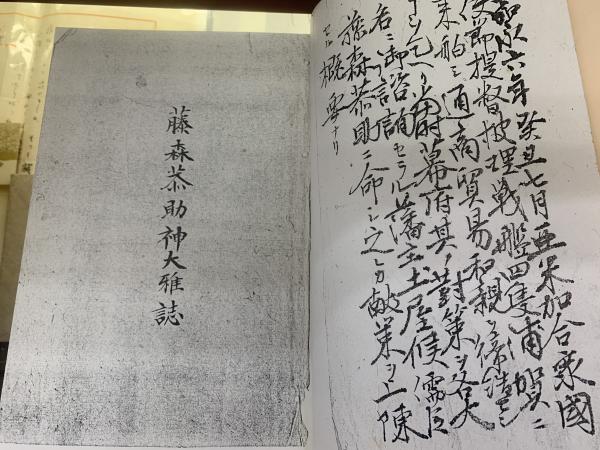 嘉永六年癸丑七月亜米加合衆國
使節提督彼理戦艦四隻浦賀ニ
来舶シ通商貿易和親ヲ締結セ
ンヿヲ乞ヘリ此時幕府其ノ對策ヲ各大
名ニ御諮詢セラル藩主土屋侯儒臣
藤森恭助ニ命シ之レカ献策ヲ上陳
セル概要ナリ
藤森恭助神大雅誌